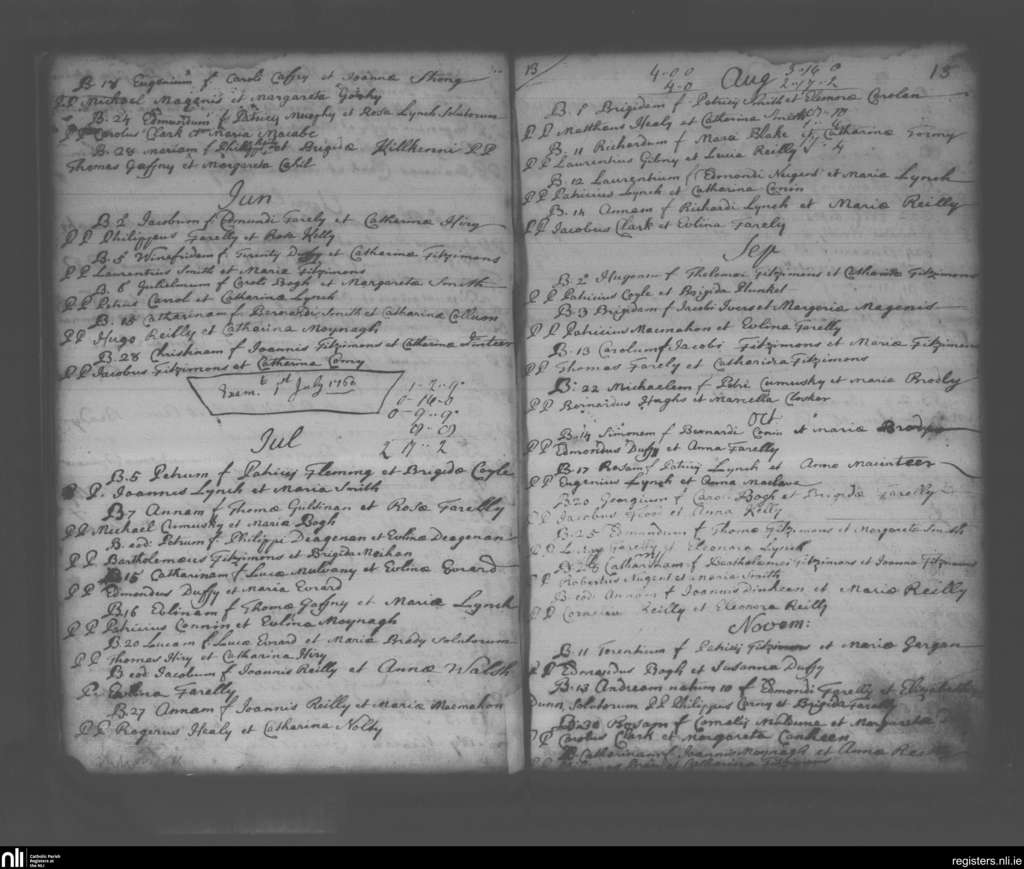 B. 18 Eugenium f. Caroli Caffry et Joannæ Strong
P P Michael Magenis et Margareta
B. 24 Edmundum f Patricij Murphy et Rosa Lynch Solutorum
P P Carolus Clark et Maria Macabe
B. 28 Mariam f Philippi et Brigidæ Killkenni P P
Thomas Gaffny et Margareta Cahil
Jun
B 2 Jacobum f Edmundi Farely et Catherinæ Hiry
P P Philippus Farelly et Rosa Kelly
B. 5 Winefridam f. Turenty Duffy et Catherinæ Fitzimons
P P Laurentius Smith et Maria Fitzimons
B. 6 Juhelmum f Caroli Bogh et Margareta Smith
P P Petrus Carrol et Catharina Lynch
B. 18 Catharinam f Bernardi Smith et Catharina
P P Hugo Reilly et Catharina Moynagh
B. 28 Christinam f Joannis Fitzimons et Catherina
P P Jacobus Fitzimons et Catherina
Exam. t 1st July 1760
1-2-9
0-14-0
0-9-9
2 17-2
Jul
B. 5 Petrum f Patricij Fleming et Brigidæ Coyle
P P. Joannis Lynch et Maria Smith
B 7 Annam f Thomæ Guldinan et Rosæ Farelly
P P Michael Cumusky et Maria Bogh
B. eod. Petrum f Philippi Deagenan et Evlinæ Deagenan
P P Bartholemæus Fitzimons et Brigida Meehan
B 15 Catharinam f Lucæ Mulvany et Evlinæ Evrard
P P Edmondus Duffy et Maria Evrard
B 16 Evlinam f Thomæ Gaffny et Mariæ Lynch
P P Patricius Connin et Evlina Moynagh
B 20 Lucam f Lucæ Evrard et Maria Brady Solutorum
P P Thomas Hiry et Catharina Hiry
B eod Jacobum f Joannis Reilly et Annæ Walsh
P. Evlina Farelly
B. 27 Annam f Joannis Reilly et Mariæ Macmahon
P P Rogerus Healy et Catharina Nolty
13
4-0 0
4-0
Aug
3-14 0
2-17-2
15
B. 1 Brigidam f Patricij Smith et Eleonora Carolan
P P Matthæus Healy et Catharina Smith
B. 11 Richardum f Marci Blake et Catharinæ
P P Laurentius Gibny et Lucia Reilly
B 12 Laurentium f Edmondi Nugent et Maria Lynch
P P Patricius Lynch et Catharina Conin
B. 14 Annam f Richardi Lynch et Mariæ Reilly
P P Jacobus Clark et Evlina Farely
Sep
B. 2 Hugonem f Tholomei Fitzimons et Catharina Fitzimons
P P Patricius Coyle et Brigida Plunket
B. 3 Brigidam f Jacobi Ivers et Margeria Magenis
P P Patricius Macmahon et Evlina Farelly
B. 13 Carolum f. Jacobi Fitzimons et Maria Fitzimons
P P Thomas Farely et Catharina Fitzimons
B. 22 Michaelem f Petri Cumusky et Maria Brody
P P Bernardus Haghs et Marcella
Oct
B. 14 Simonem f Bernardi Conin et Mariæ
P P Edmondus Duffy et Anna Farelly
B. 17 Rosam f Patricij Lynch et Anna Macinteer
P P Eugenius Lynch et Anna
B 20 Georgium f Caroli Bogh et Brigidæ Farelly
P P Jacobus et Anna Reilly
B. 25 Edmundum f Thomæ Fitzimons et Margareta Smith
P P Farelly et Eleonora Lynch
B 28 Catharinam f Bartholomei Fitzimons et Joanna Fitzimons
P P Robertus Nugent et Maria Smith
B eod. Annam f Joannis dinkeen et Mariæ Reilly
P P Reilly et Eleonora Reilly
Novem:
B. 11 Terentium f Patricij Fitzimons et Mariæ Gargan
P P Edmondus Bogh et Susanna Duffy
B. 13 Andream natum 10 f Edmondi Farelly et Elizabetha
Dunn, Solutorum P P Philippus et Brigida Farelly
B. 30 Rosam f Cornelij et Margareta
P P Carolus Clark et Margareta
B. Catharinam f Joannis Moynagh et Anna Reilly
P P et Catharina Fitzimons
nli
Catholic Parish
Registers at
the NLI
registers.nli.ie